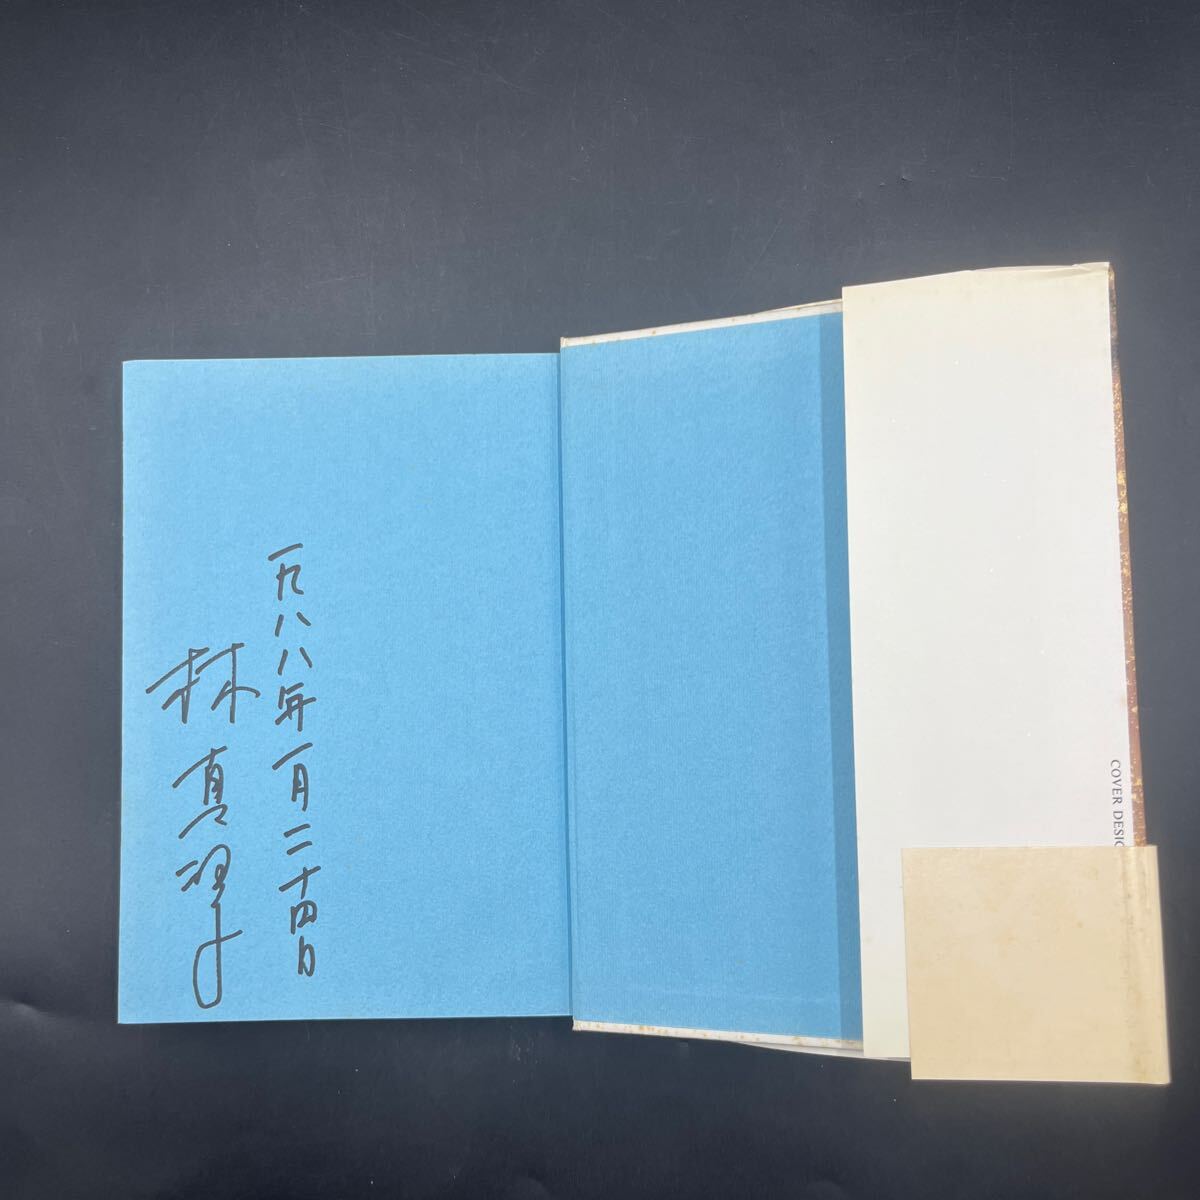 一九八八年一月二十四日
林真理子
COVER DESIG